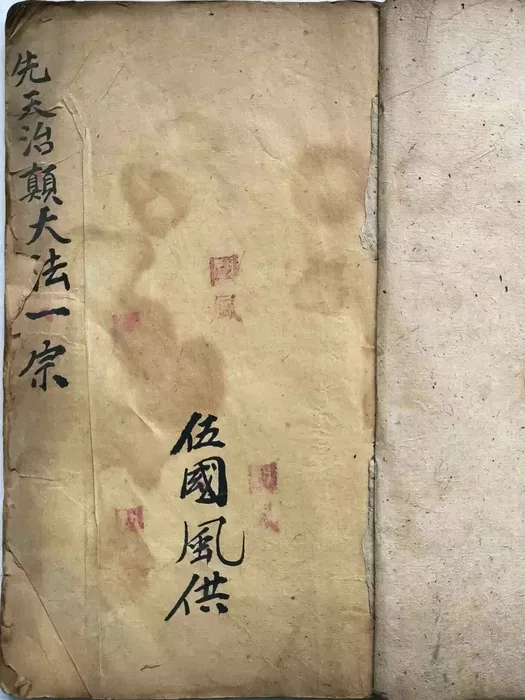 先天治顛大法一宗
伍國風供
國風